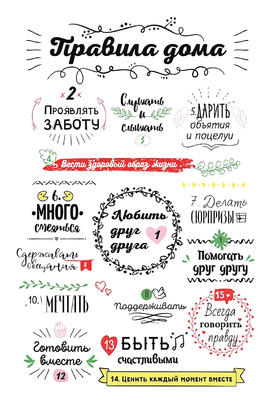 Правила дома
2
Проявлять
ЗАБОТУ
Слушать
и
слышать
3
5.ДАРИТЬ
объятия
и поцелуи
4.
Вести здоровый образ жизни
6.
МНОГО
смеяться
Любить
друг
друга
1
7. Делать
СЮРПРИЗЫ
Сдерживать
обещания 8
9
Помогать
друг другу
10. МЕЧТАТЬ
11
Поддерживать
15
Всегда
говорить
правду
Готовить
вместе
12
13 БЫТЬ
счастливыми
14. Ценить каждый момент вместе